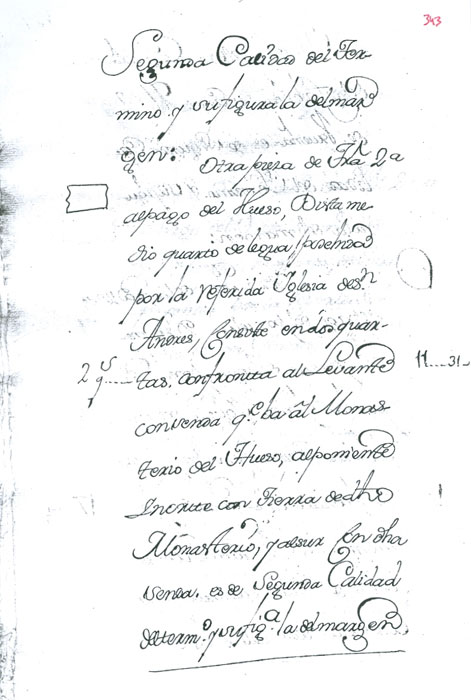 343
Segunda Calidad del Ter-
mino y su figura la del már
gen:
Otra pieza de Trã 2a
al págo del Hueso, Dista me-
dio quarto de legua, posehida
por la referida Yglesia de Sn
Andres, Consiste en dos quar-
2 qs
tas, confronta al Levante
11...31
con senda q.e ba âl Monas
terio del Hueso, al poniente
y norte con Tierra de dho
Monasterio, y al sur Con dha
senda, es de Segunda Calidad
del term.o y su fig.a la del margen,